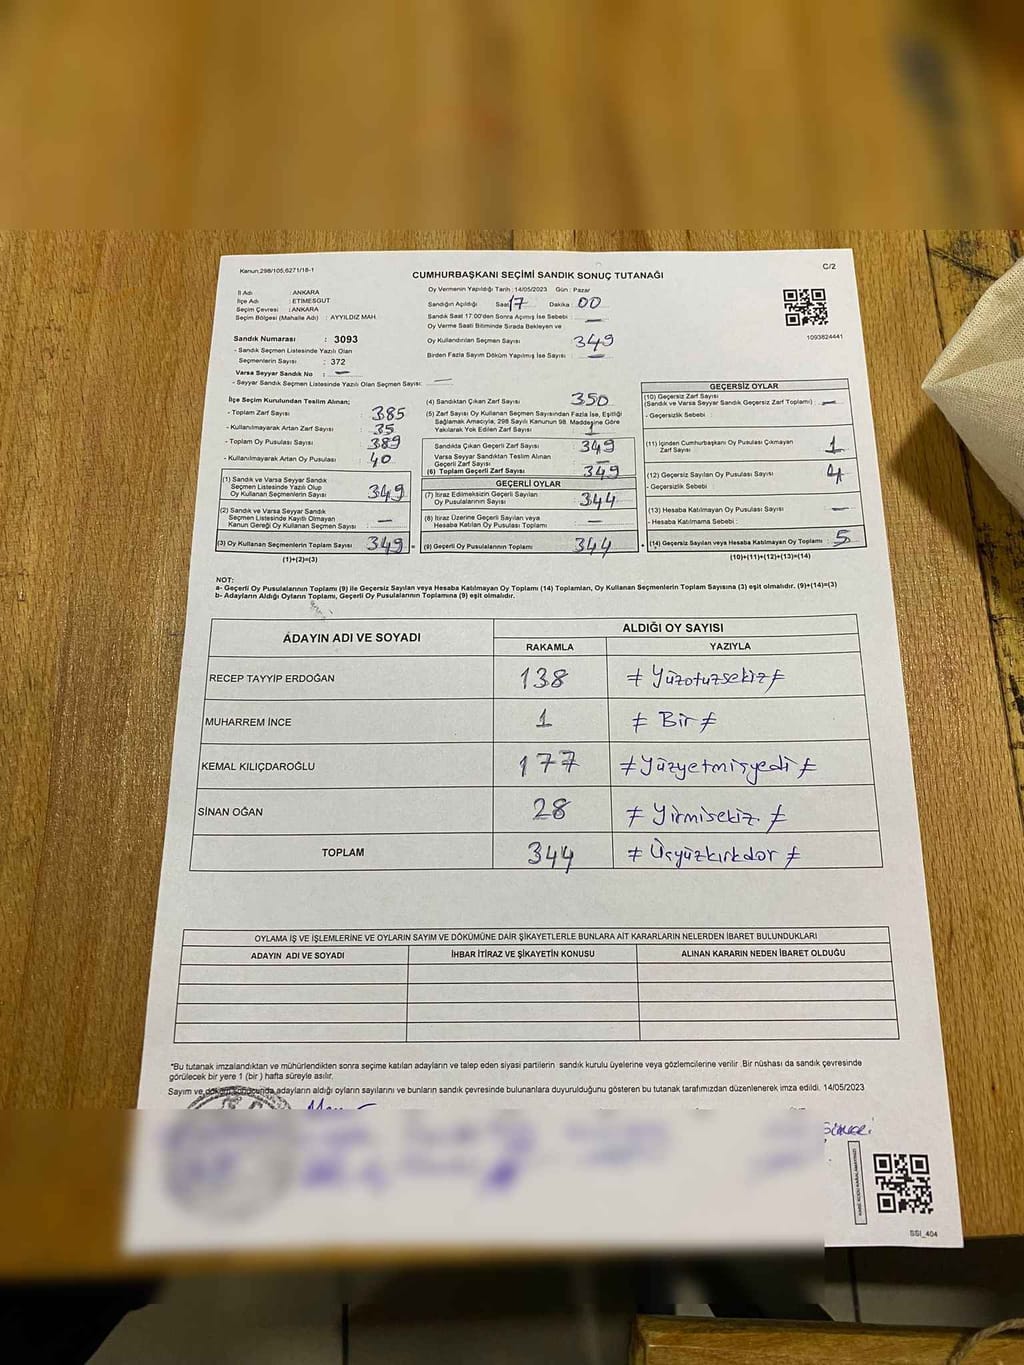 Kanun,298/105,6271/18-1
C/2
CUMHURBAŞKANI SEÇİMİ SANDIK SONUÇ TUTANAĞI
İl Adı : ANKARA
İlçe Adı : ETİMESGUT
Seçim Çevresi : ANKARA
Seçim Bölgesi (Mahalle Adı) : AYYILDIZ MAH.
Sandık Numarası : 3093
- Sandık Seçmen Listesinde Yazılı Olan
Seçmenlerin Sayısı : 372
Varsa Seyyar Sandık No : —
- Seyyar Sandık Seçmen Listesinde Yazılı Olan Seçmen Sayısı: —
Oy Vermenin Yapıldığı Tarih : 14/05/2023 Gün : Pazar
Sandığın Açıldığı Saat 17 Dakika : 00
Sandık Saat 17:00'den Sonra Açılmış İse Sebebi : —
Oy Verme Saati Bitiminde Sırada Bekleyen ve
Oy Kullandırılan Seçmen Sayısı : 349
Birden Fazla Sayım Döküm Yapılmış İse Sayısı : —
1093824441
İlçe Seçim Kurulundan Teslim Alınan;
- Toplam Zarf Sayısı : 385
- Kullanılmayarak Artan Zarf Sayısı : 35
- Toplam Oy Pusulası Sayısı : 389
- Kullanılmayarak Artan Oy Pusulası : 40
(1) Sandık ve Varsa Seyyar Sandık
Seçmen Listesinde Yazılı Olup
Oy Kullanan Seçmenlerin Sayısı : 349
(2) Sandık ve Varsa Seyyar Sandık
Seçmen Listesinde Kayıtlı Olmayan
Kanun Gereği Oy Kullanan Seçmen Sayısı : —
(3) Oy Kullanan Seçmenlerin Toplam Sayısı : 349
(1)+(2)=(3)
(4) Sandıktan Çıkan Zarf Sayısı : 350
(5) Zarf Sayısı Oy Kullanan Seçmen Sayısından Fazla İse, Eşitliği
Sağlamak Amacıyla; 298 Sayılı Kanunun 98. Maddesine Göre
Yakılarak Yok Edilen Zarf Sayısı : 1
Sandıkta Çıkan Geçerli Zarf Sayısı : 349
Varsa Seyyar Sandıktan Teslim Alınan
Geçerli Zarf Sayısı : —
(6) Toplam Geçerli Zarf Sayısı : 349
GEÇERLİ OYLAR
(7) İtiraz Edilmeksizin Geçerli Sayılan
Oy Pusulalarının Sayısı : 344
(8) İtiraz Üzerine Geçerli Sayılan veya
Hesaba Katılan Oy Pusulası Toplamı : —
= (9) Geçerli Oy Pusulalarının Toplamı : 344
GEÇERSİZ OYLAR
(10) Geçersiz Zarf Sayısı
(Sandık ve Varsa Seyyar Sandık Geçersiz Zarf Toplamı) : —
- Geçersizlik Sebebi :
(11) İçinden Cumhurbaşkanı Oy Pusulası Çıkmayan
Zarf Sayısı : 1
(12) Geçersiz Sayılan Oy Pusulası Sayısı : 4
- Geçersizlik Sebebi :
(13) Hesaba Katılmayan Oy Pusulası Sayısı : —
- Hesaba Katılmama Sebebi :
+ (14) Geçersiz Sayılan veya Hesaba Katılmayan Oy Toplamı : 5
(10)+(11)+(12)+(13)=(14)
NOT:
a- Geçerli Oy Pusulalarının Toplamı (9) ile Geçersiz Sayılan veya Hesaba Katılmayan Oy Toplamı (14) Toplamları, Oy Kullanan Seçmenlerin Toplam Sayısına (3) eşit olmalıdır. (9)+(14)=(3)
b- Adayların Aldığı Oyların Toplamı, Geçerli Oy Pusulalarının Toplamına (9) eşit olmalıdır.
ADAYIN ADI VE SOYADI ALDIĞI OY SAYISI
RAKAMLA YAZIYLA
RECEP TAYYİP ERDOĞAN 138 ≠ Yüzotuzsekiz ≠
MUHARREM İNCE 1 ≠ Bir ≠
KEMAL KILIÇDAROĞLU 177 ≠ Yüzyetmişyedi ≠
SİNAN OĞAN 28 ≠ Yirmisekiz ≠
TOPLAM 344 ≠ Üçyüzkırkdör ≠
OYLAMA İŞ VE İŞLEMLERİNE VE OYLARIN SAYIM VE DÖKÜMÜNE DAİR ŞİKAYETLERLE BUNLARA AİT KARARLARIN NELERDEN İBARET BULUNDUKLARI
ADAYIN ADI VE SOYADI İHBAR İTİRAZ VE ŞİKAYETİN KONUSU ALINAN KARARIN NEDEN İBARET OLDUĞU
"Bu tutanak imzalandıktan ve mühürlendikten sonra seçime katılan adayların ve talep eden siyasi partilerin sandık kurulu üyelerine veya gözlemcilerine verilir .Bir nüshası da sandık çevresinde
görülecek bir yere 1 (bir ) hafta süreyle asılır.
Sayım ve döküm sonucunda adayların aldığı oyların sayılarını ve bunların sandık çevresinde bulunanlara duyurulduğunu gösteren bu tutanak tarafımızdan düzenlenerek imza edildi. 14/05/2023
SSİ_404